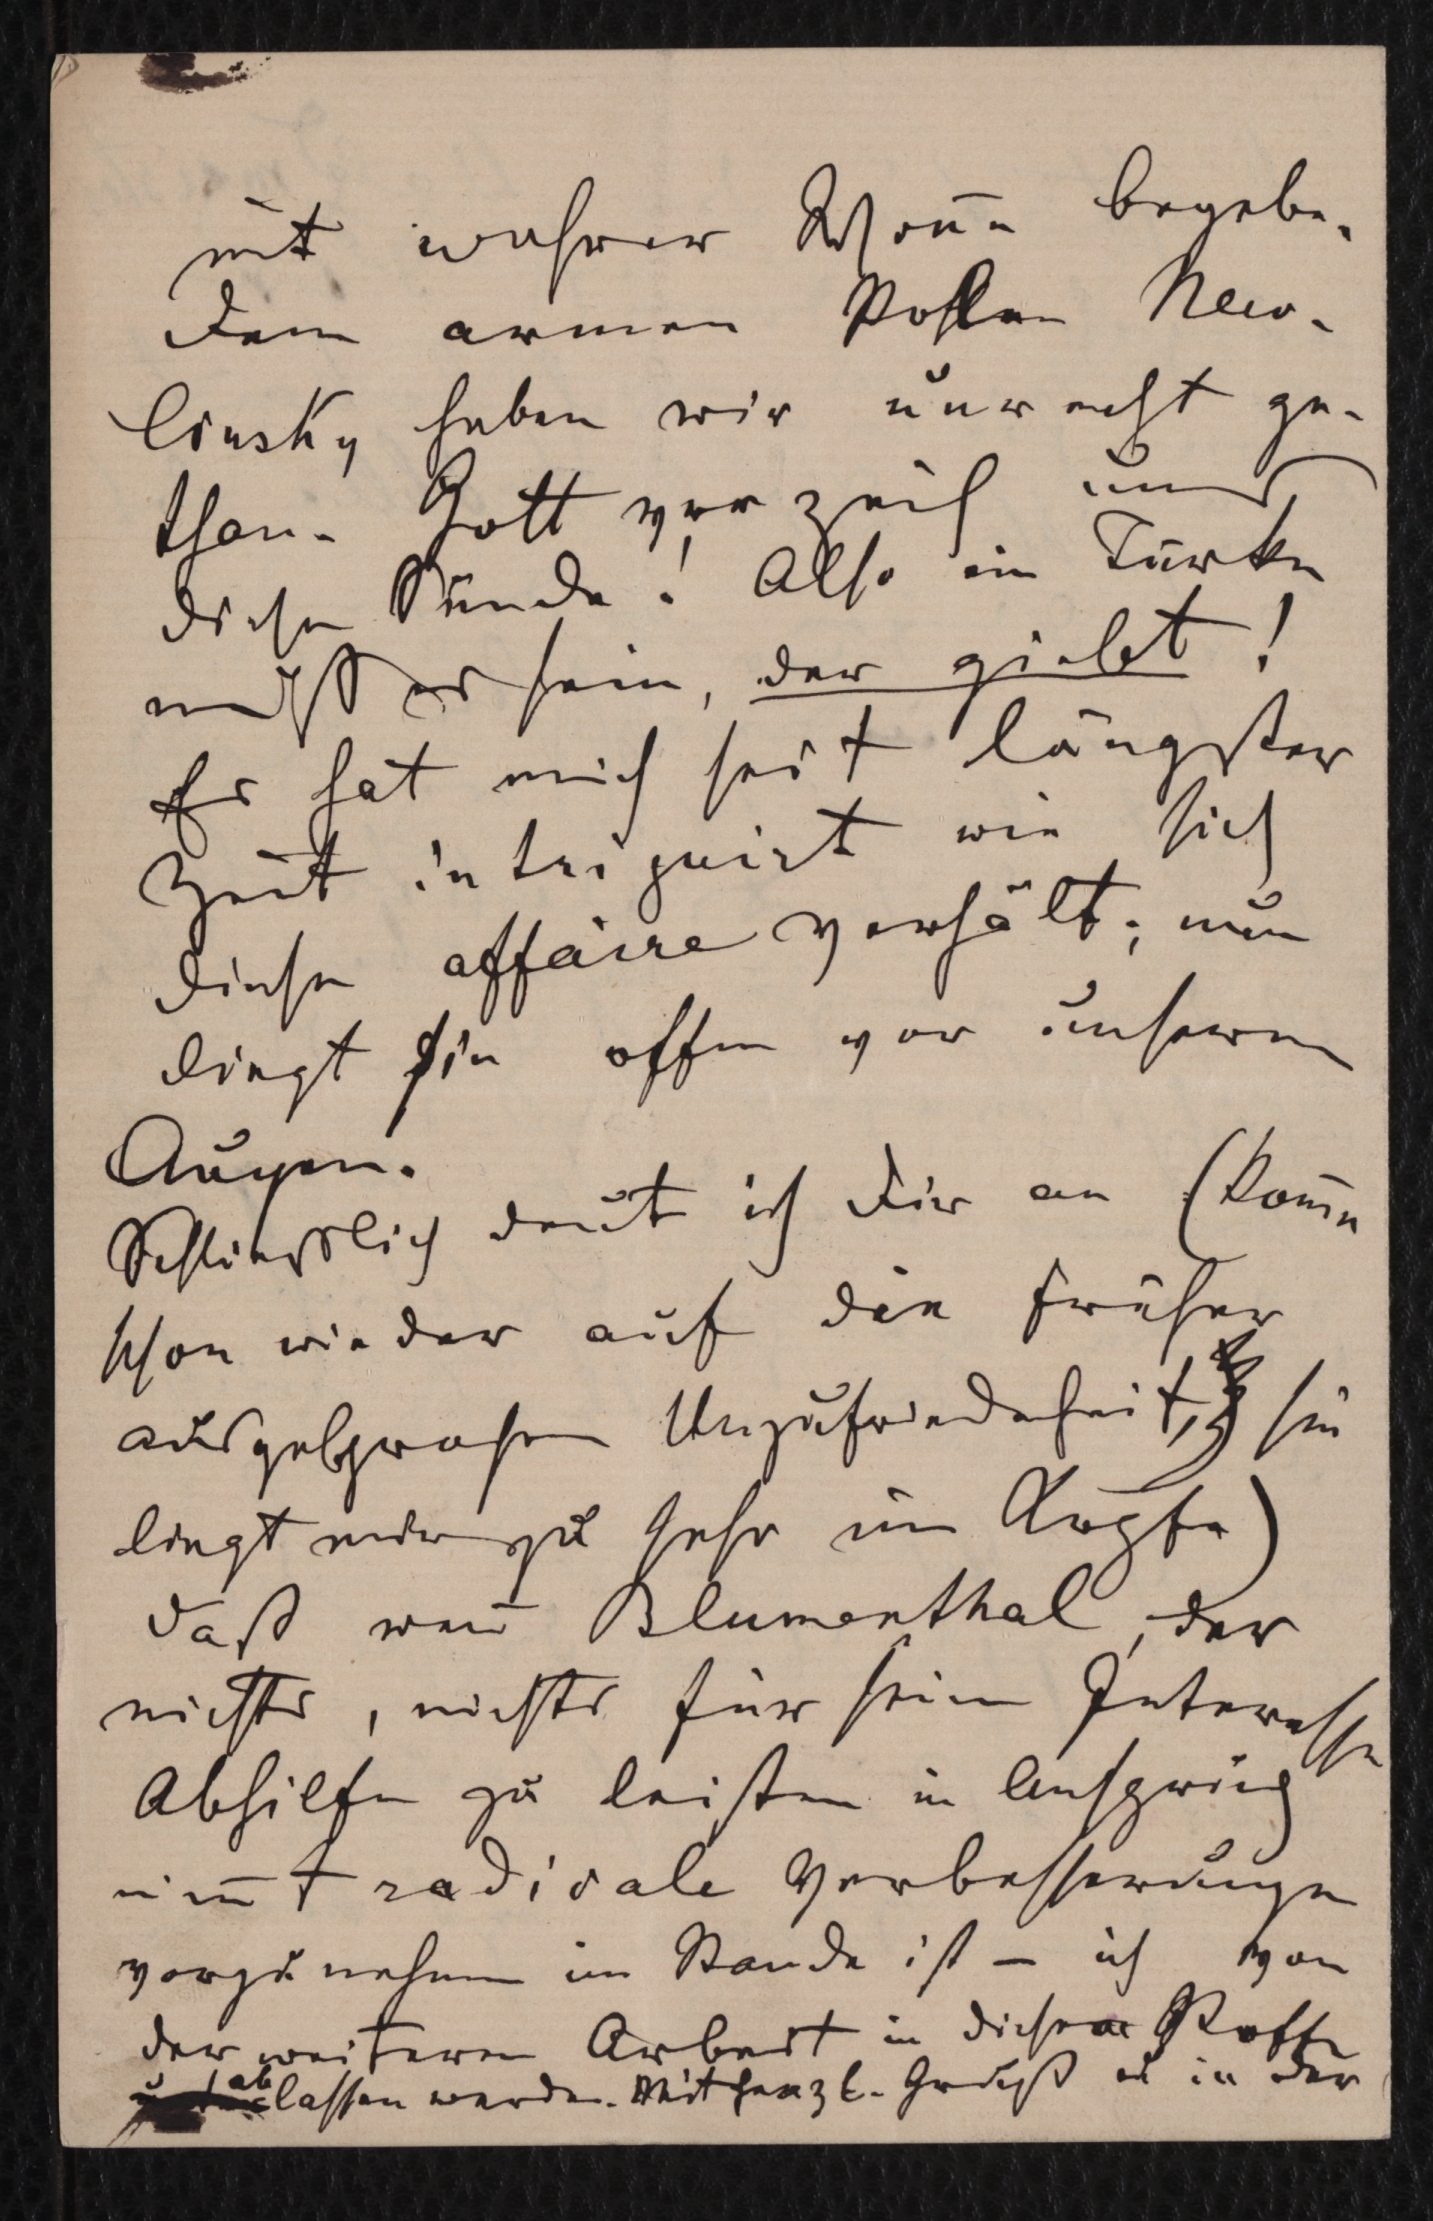 mit wahrer Woñe begebe.
dem armen Pohlen New-
linsky haben wir unrecht ge-
than. Gott verzeih uns
diese Sünde! Also ein Türke
muß es sein, der giebt!
Es hat mich seit längster
Zeit intriguirt wie sich
diese affaire verhält; nun
liegt sie offen vor unseren
Augen.
Schliesslich deut ich dir an (kom̄e
schon wieder auf die früher
ausgesprochene Unzufriedenheit, sie
liegt mir zu sehr im Kopfe)
daß wen̄ Blumenthal, der
nichts, nichts für sein Interesse
Abhilfe zu leisten in Anspruch
nim̄t radicale Verbesserungen
vorzunehmen im Stande ist – ich von
der weiteren Arbeit in diesem Stoffe
ablassen werde. Mit herzl. Gruß in der